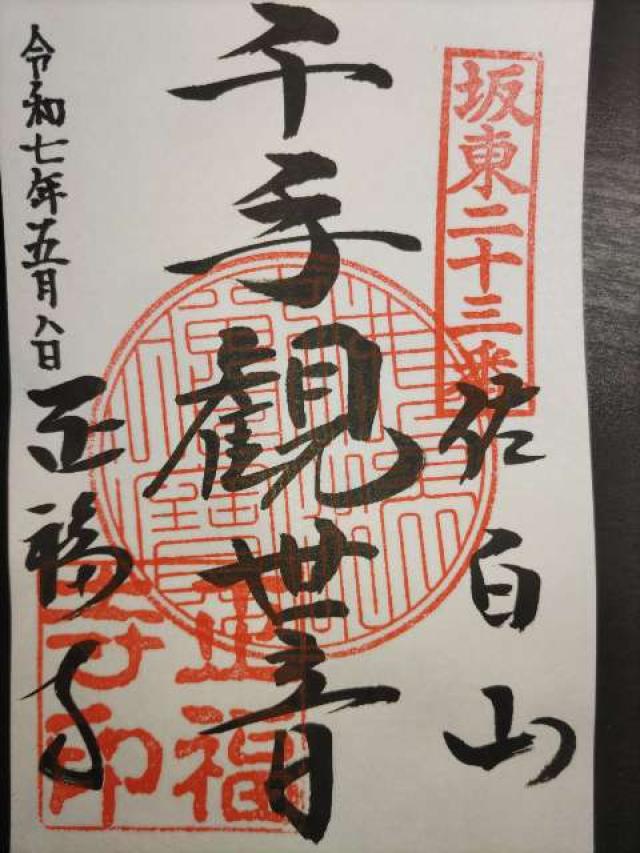 坂東二十三番
佐白山
千手觀世音
令和七年五月八日
正福寺
正福寺印